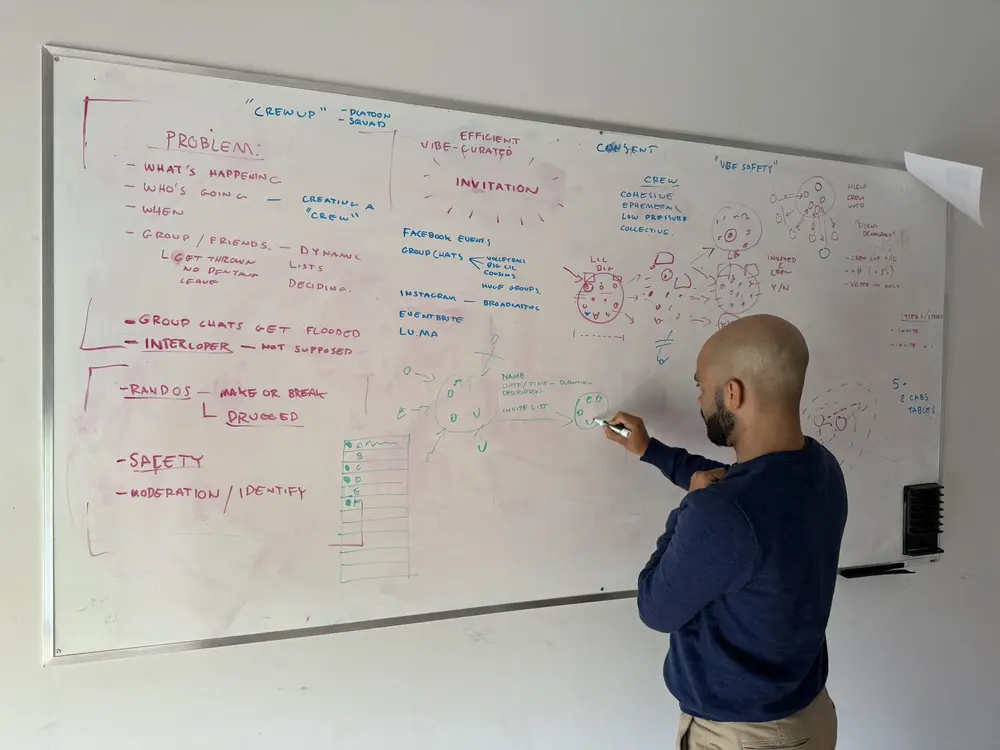 "CREWUP" - PLATOON
- SQUAD
PROBLEM:
- WHAT'S HAPPENING
- WHO'S GOING - CREATING A
"CREW"
- WHEN
- GROUP / FRIENDS. - DYNAMIC
LISTS
DECIDING.
GET THROWN
LEAVE
- GROUP CHATS GET FLOODED
- INTERLOPER - NOT SUPPOSED
- RANDOS - MAKE OR BREAK
DRUGGED
- SAFETY
- MODERATION / IDENTIFY
EFFICIENT
VIBE-CURATED
INVITATION
FACEBOOK EVENTS
GROUP CHATS
VOLLEYBALL
BIG LIL
COUSINS
HUGE GROUPS.
INSTAGRAM - BROADCASTING
EVENTBRITE
LU.MA
NAME
DATE/TIME - DURATION
DESCRIPTION
INVITE LIST
A
B
C
D
E
CONSENT
CREW
COHESIVE
EPHEMERAL
LOW PRESSURE
COLLECTING.
LIL
BIG
"VIBE SAFETY"
LB
INVITED
2
CREW
Y/N
SILENT
CREW
VOTE
"SILENT
- INVITE
- INVITE + 1
5.
2 CABS
TABLES